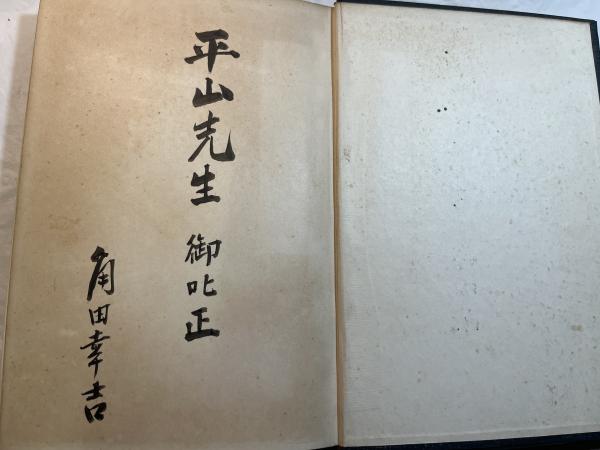 平山先生 御叱正
角田幸吉